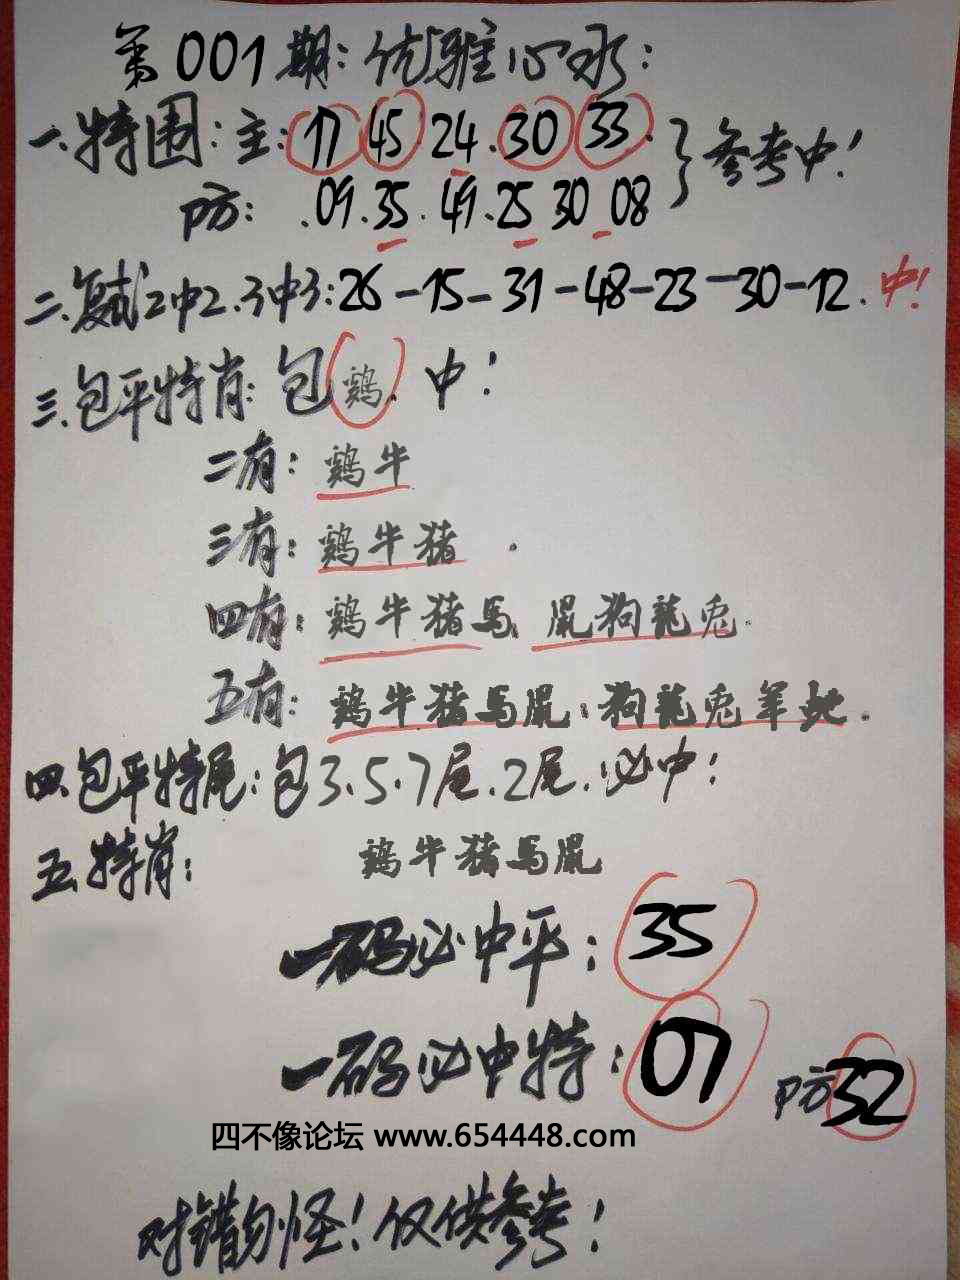 第001期：优雅心水：
一.特围：主：17 45 24. 30 33. } 参考中！
防：.09.35.49.25 30 08
二.复式2中2.3中3：26-15-31-48-23-30-12.中！
三.包平特肖：包鷄.中！
二有：鷄牛
三有：鷄牛猪.
四有：鷄牛猪馬、鼠狗龍兎.
五有：鷄牛猪馬鼠：狗龍兎羊虵.
四.包平特尾：包3.5.7尾.2尾.必中！
五.特肖：鷄牛猪馬鼠
一码必中平：35
一码必中特：07 防32
四不像论坛 www.654448.com
对错勿怪！仅供参考！